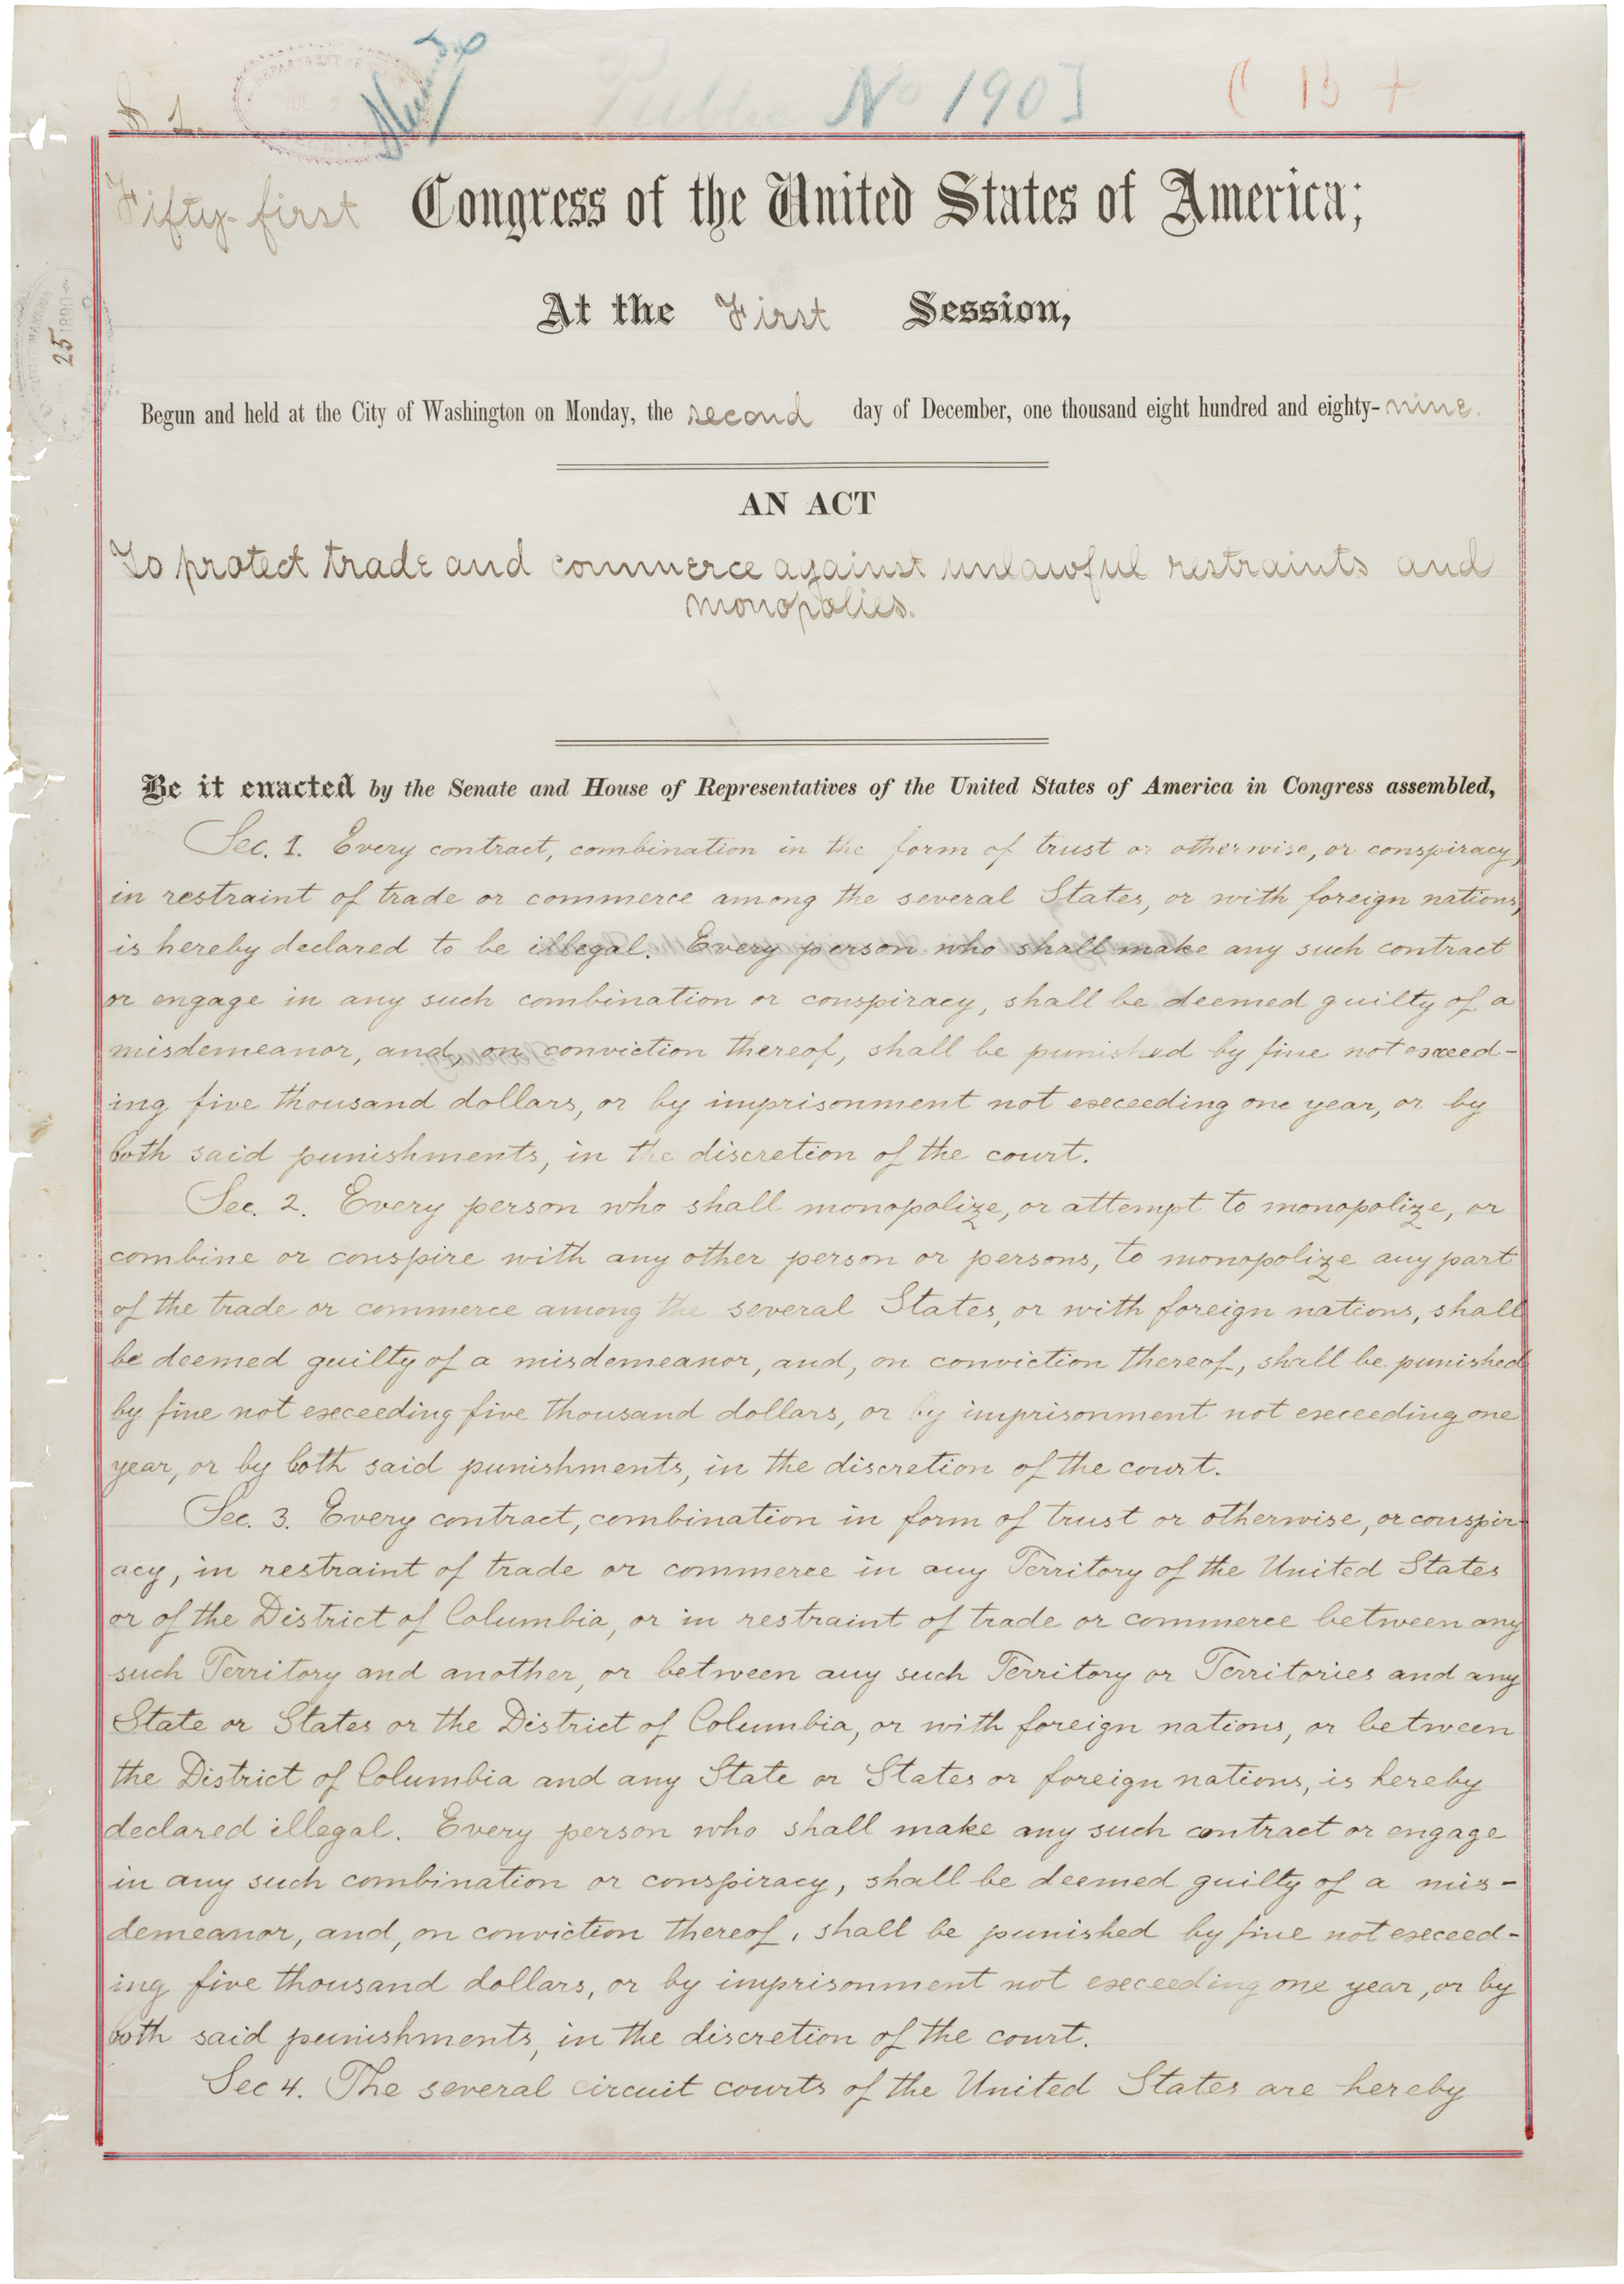 S. 1.
Public No 190]
Fifty-first Congress of the United States of America;
At the First Session,
Begun and held at the City of Washington on Monday, the second day of December, one thousand eight hundred and eighty-nine.
AN ACT
To protect trade and commerce against unlawful restraints and
monopolies.
Be it enacted by the Senate and House of Representatives of the United States of America in Congress assembled,
Sec. 1. Every contract, combination in the form of trust or otherwise, or conspiracy,
in restraint of trade or commerce among the several States, or with foreign nations,
is hereby declared to be illegal. Every person who shall make any such contract
or engage in any such combination or conspiracy, shall be deemed guilty of a
misdemeanor, and, on conviction thereof, shall be punished by fine not exceed-
ing five thousand dollars, or by imprisonment not exceeding one year, or by
both said punishments, in the discretion of the court.
Sec. 2. Every person who shall monopolize, or attempt to monopolize, or
combine or conspire with any other person or persons, to monopolize any part
of the trade or commerce among the several States, or with foreign nations, shall
be deemed guilty of a misdemeanor, and, on conviction thereof, shall be punished
by fine not exceeding five thousand dollars, or by imprisonment not exceeding one
year, or by both said punishments, in the discretion of the court.
Sec. 3. Every contract, combination in form of trust or otherwise, or conspir-
acy, in restraint of trade or commerce in any Territory of the United States
or of the District of Columbia, or in restraint of trade or commerce between any
such Territory and another, or between any such Territory or Territories and any
State or States or the District of Columbia, or with foreign nations, or between
the District of Columbia and any State or States or foreign nations, is hereby
declared illegal. Every person who shall make any such contract or engage
in any such combination or conspiracy, shall be deemed guilty of a mis-
demeanor, and, on conviction thereof, shall be punished by fine not exceed-
ing five thousand dollars, or by imprisonment not exceeding one year, or by
both said punishments, in the discretion of the court.
Sec 4. The several circuit courts of the United States are hereby